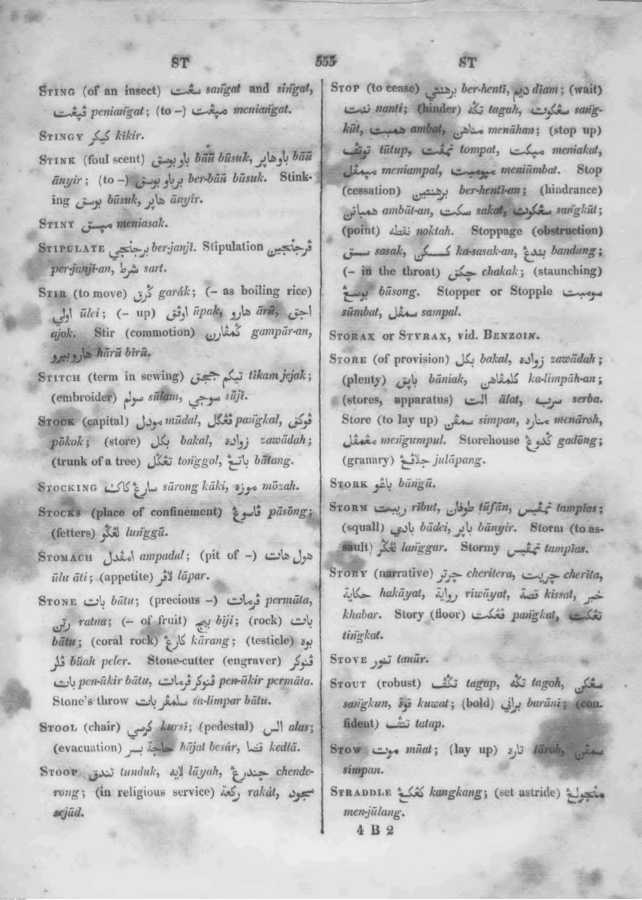 ST 555 ST
STING (of an insect) سڠت sañgat and siñgat,
ڤڠت peniañgat; (to –) مڠت meniañgat.
STINGY کيکر kikir.
STINK (foul scent) باو بوسق bāū būsuk, باو هاڽر bāū
ānyir; (to –) برباو بوسق ber-bāū būsuk. Stink-
ing بوسق būsuk, هاڽر ānyir.
STINY مڽسق meniasak.
STIPULATE برجنجي ber-janjī. Stipulation ڤرجنجين
per-janjī-an, شرط sart.
STIR (to move) ݢرق garāk; (– as boiling rice)
اولي ūlei; (– up) اوڤق ūpak, هارو ārū, اجق
ajok. Stir (commotion) ݢمڤارن gampār-an,
هارو بيرو hārū bīrū.
STITCH (term in sewing) تيکم ججق tīkam jejak;
(embroider) سولم sūlam, سوجي sūjī.
STOCK (capital) مودل mūdal, ڤڠکل pañgkal, ڤوکق
pōkok; (store) بکل bakal, زواده zawādah;
(trunk of a tree) تڠݢل toñggol, باتڠ bātang.
STOCKING سارڠ کاکي sārong kāki, موزه mōzah.
STOCKS (place of confinement) ڤاسوڠ pāsōng;
(fetters) لڠݢو luñggū.
STOMACH امڤدل ampadal; (pit of –) هول هات
ūlu āti; (appetite) لاڤر lāpar.
STONE بات bātu; (precious –) ڤرمات permāta,
رتن ratna; (– of fruit) بيج biji; (rock) بات
bātu; (coral rock) کارڠ kārang; (testicle) بوه
ڤلر būah peler. Stone-cutter (engraver) ڤنوکر
بات pen-ūkir bātu, ڤنوکر ڤرمات pen-ūkir permāta.
Stone's throw سلمڤر بات sa-limpar bātu.
STOOL (chair) کرسي kursī; (pedestal) الس alas;
(evacuation) حاجة بسر hājat besār, قضا kedlā.
STOOP تندق tunduk, لايه lāyah, چندرڠ chende-
rong; (in religious service) رکعة rakāt, سجود
sejūd.
STOP (to cease) برهنتي ber-hentī, ديم diam; (wait)
ننت nanti; (hinder) تݢه tagah, سڠکوت sañg-
kūt, همبت ambat, مناهن menāhan; (stop up)
توتڤ tūtup, تمڤت tompat, مڽکت meniakat,
مڽمڤل meniampal, مڽومبت meniūmbat. Stop
(cessation) برهنتين ber-hentī-an; (hindrance)
همباتن ambāt-an, سکت sakat, سڠکوت sañgkūt;
(point) نقطه noktah. Stoppage (obstruction)
سسق sasak, کسسکن ka-sasak-an, بندڠ bandung;
(– in the throat) چکق chakak; (staunching)
بوسڠ būsong. Stopper or Stopple سومبت
sūmbat, سمڤل sampal.
STORAX or STYRAX, vid. BENZOIN.
STORE (of provision) بکل bakal, زواده zawādah;
(plenty) باڽق bāniak, کلمڤاهن ka-limpāh-an;
(stores, apparatus) الت ālat, سرب serba.
Store (to lay up) سمڤن simpan, مناره menāroh,
مڠمڤل meñgumpul. Storehouse ݢدوڠ gadōng;
(granary) جلاڤڠ julāpang.
STORK باڠو bāñgū.
STORM ريبت rībut, طوفان tūfān, تمڤلس tamplas;
(squall) بادي bādei, باڽر bānyir. Storm (to as-
sault) لڠݢر lañggar. Stormy تمڤلس tamplas.
STORY (narrative) چرتر cheritera, چريت cherīta,
حکاية hakāyat, رواية riwāyat, قصة kissat, خبر
khabar. Story (floor) ڤڠکت pañgkat, تڠکت
tiñgkat.
STOVE تنور tanūr.
STOUT (robust) تݢڤ tagap, تݢه tagoh, سڠکن
sañgkun, قوة kuwat; (bold) براني barānī; (con-
fident) تتڤ tatap.
STOW موت mūat; (lay up) تاره tāroh, سمڤن
simpan.
STRADDLE کڠکڠ kangkang; (set astride) منجولڠ
men-jūlang.
4 B 2